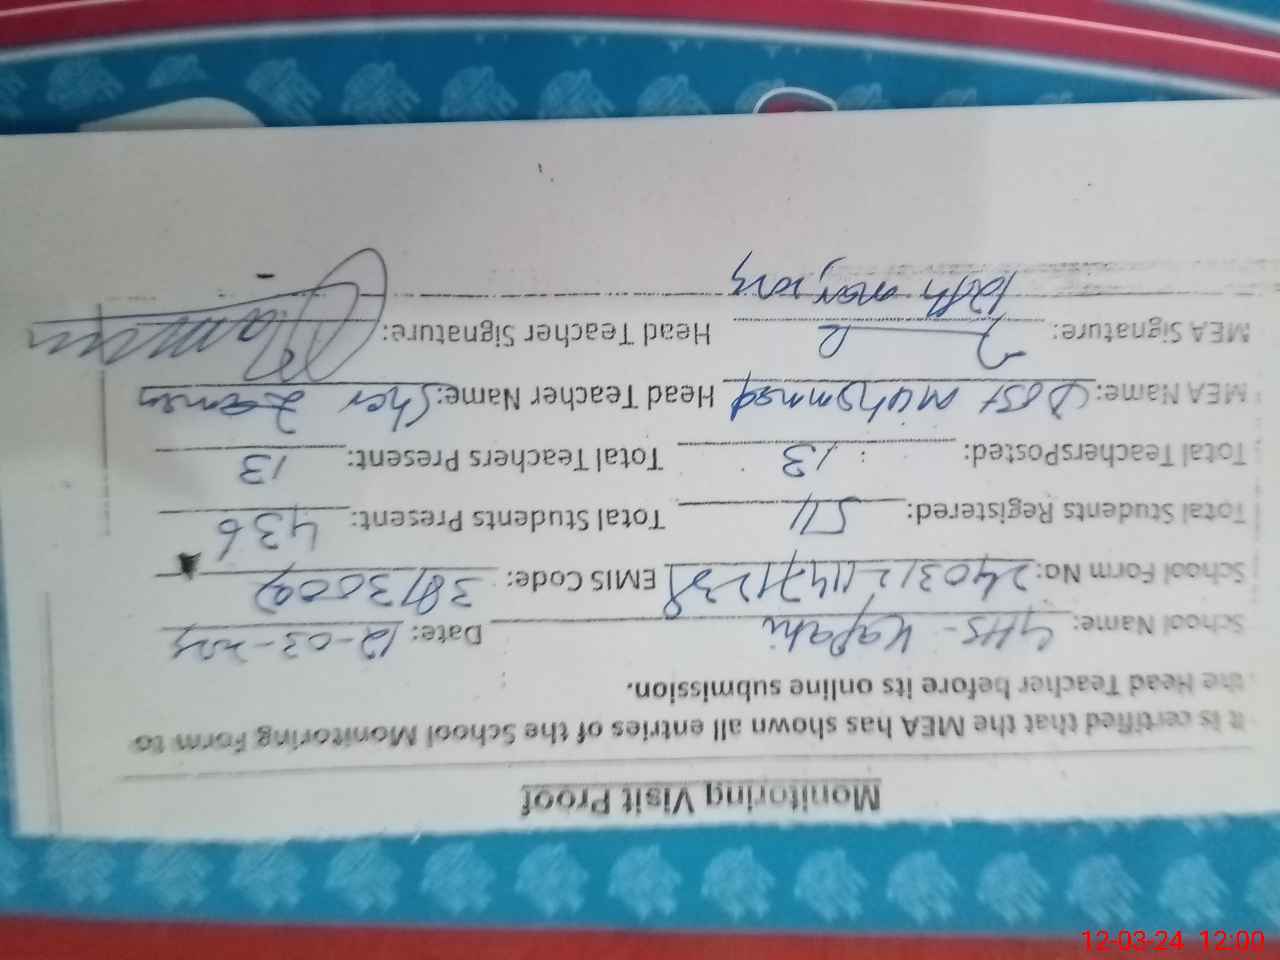 Monitoring Visit Proof
It is certified that the MEA has shown all entries of the School Monitoring Form to
the Head Teacher before its online submission.
School Name: GHS- Kapahi Date: 12-03-2024
School Form No: EMIS Code:
Total Students Registered: 511 Total Students Present: 436
Total TeachersPosted: 13 Total Teachers Present: 13
MEA Name: Dost Muhammad Head Teacher Name: Sher Zaman
MEA Signature: Head Teacher Signature:
12-03-24 12:00